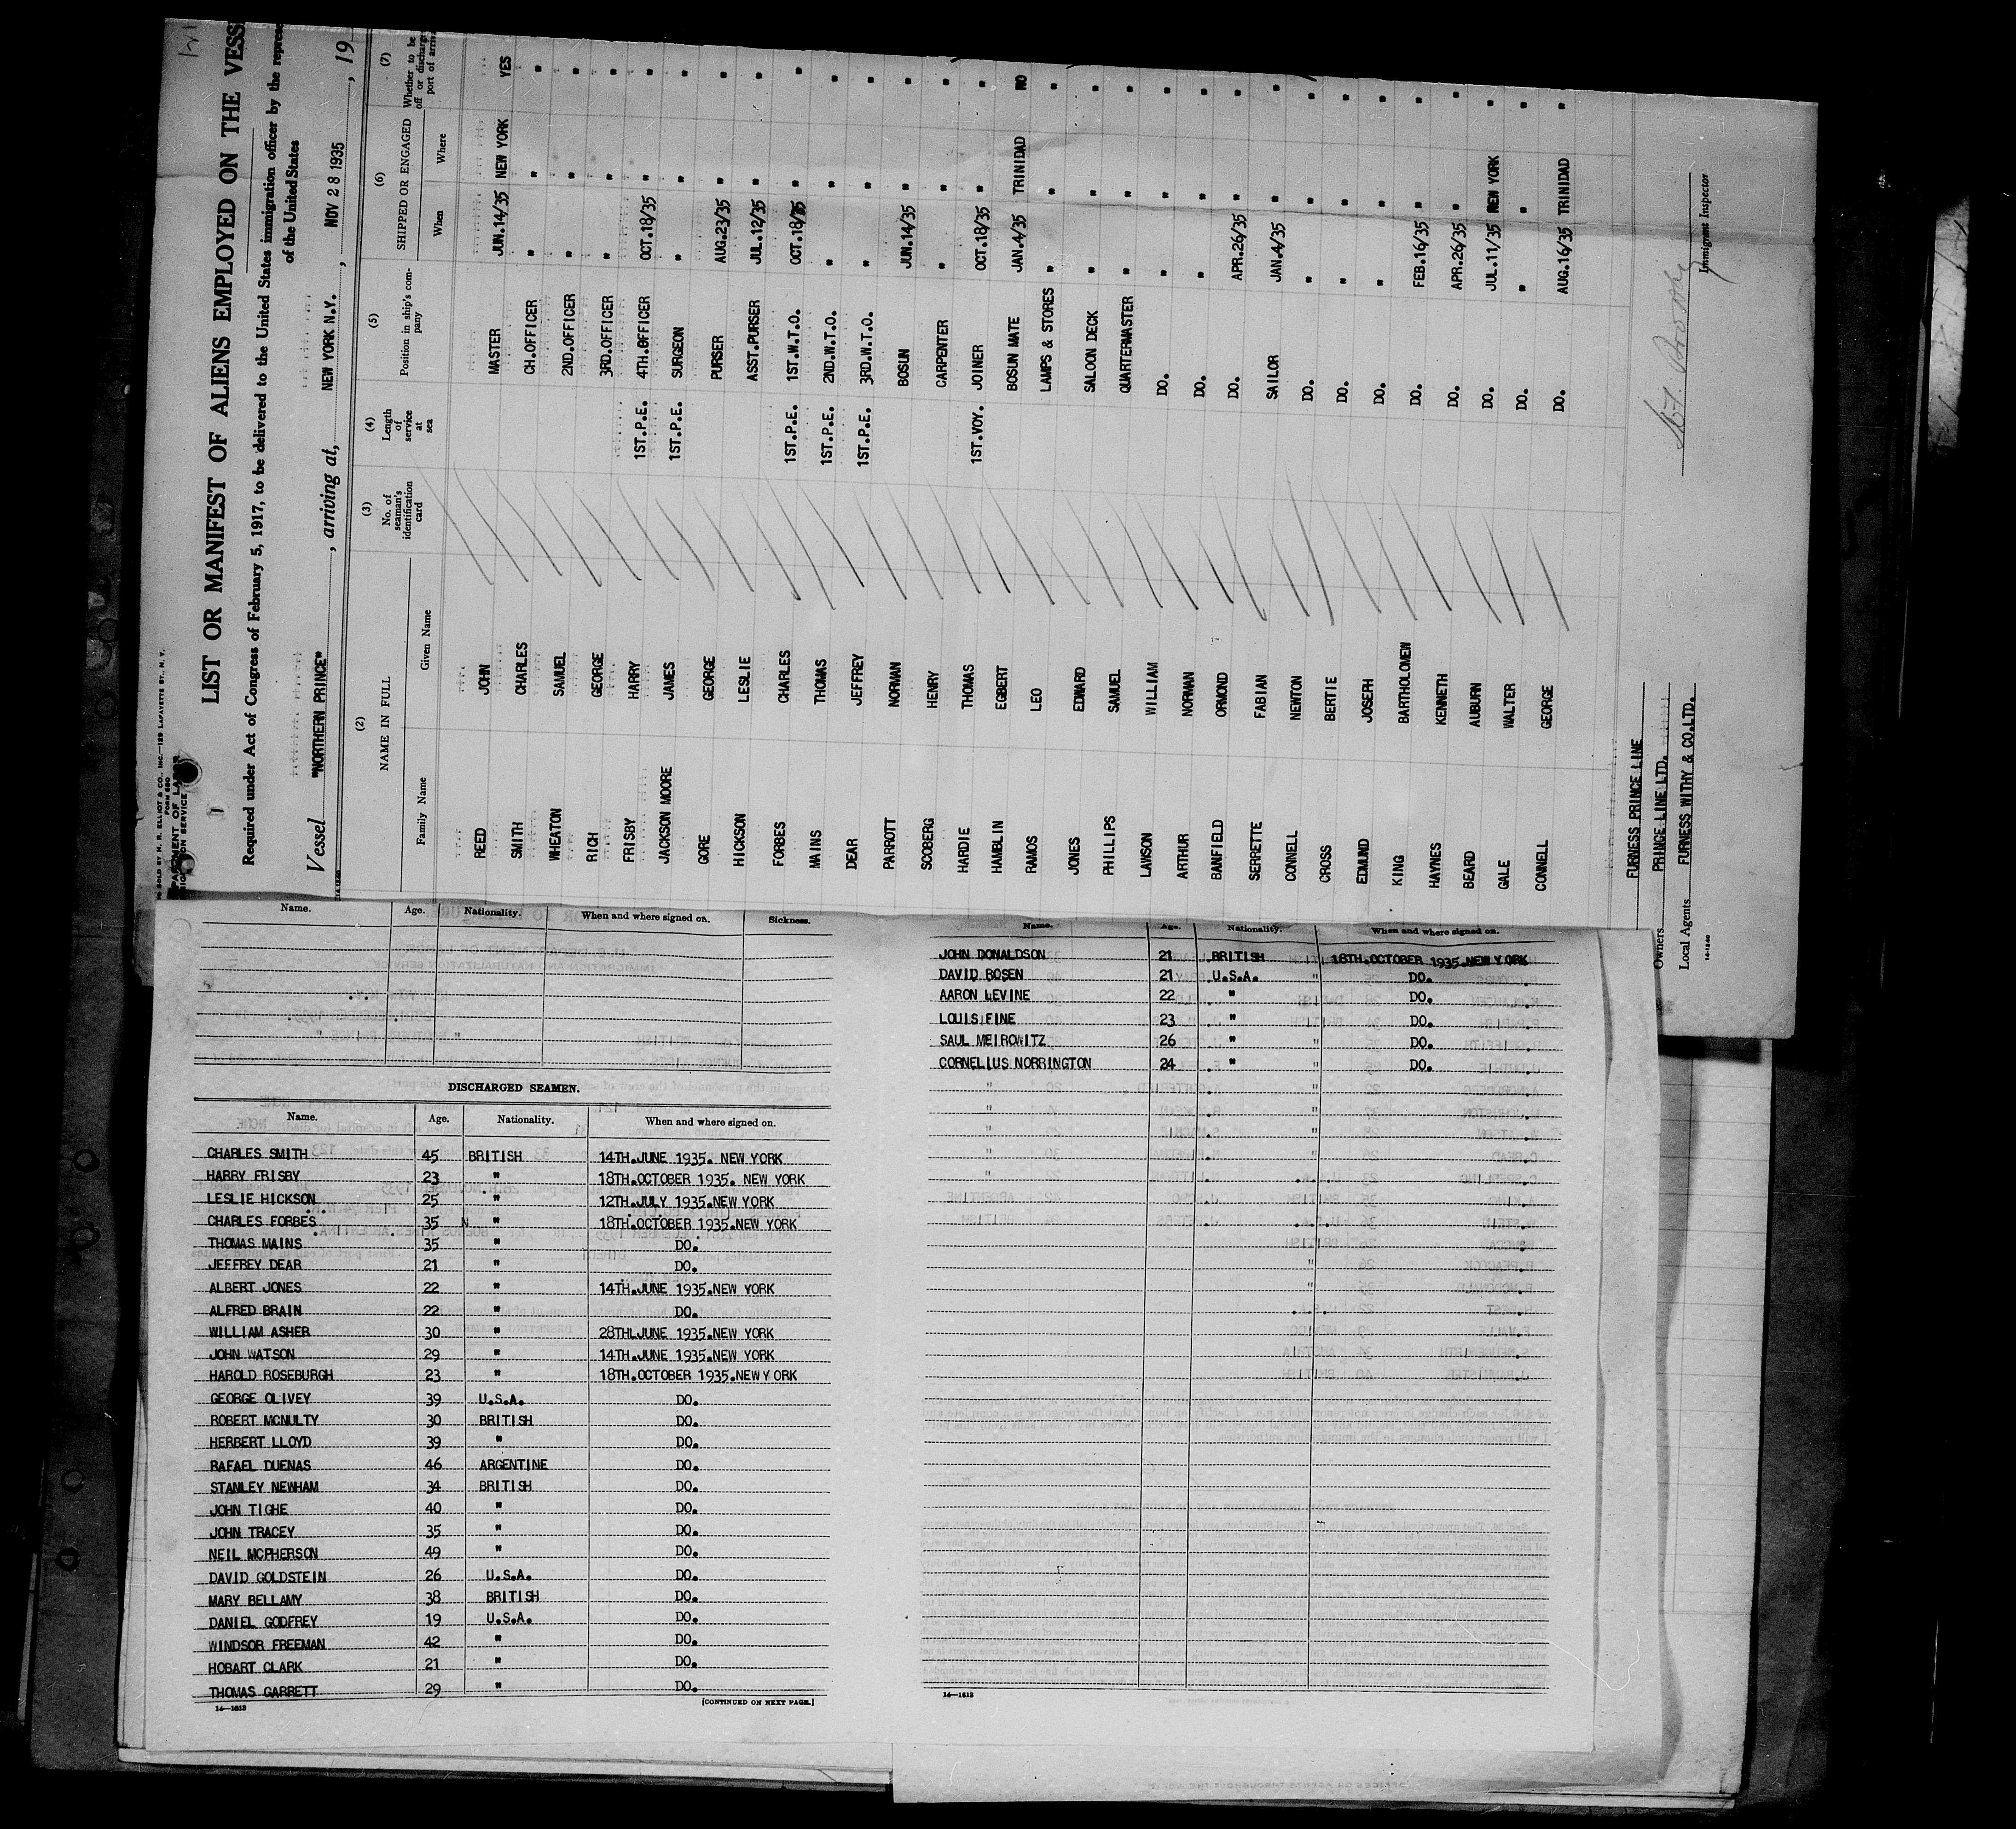 LIST OR MANIFEST OF ALIENS EMPLOYED ON THE
Required under Act of Congress of February 5, 1917, to be delivered to the United States immigration officer by the
of the United States
Vessel "NORTHERN PRINCE", arriving at, NEW YORK N.Y., NOV 28 1935, 19
(2) (3) (4) (5) (6) (7)
NAME IN FULL No. of seaman's identification card Length of service at sea Position in ship's company SHIPPED OR ENGAGED Whether to be
Family Name Given Name When Where
REED JOHN MASTER JUN.14/35 NEW YORK YES
SMITH CHARLES CH.OFFICER " " "
WHEATON SAMUEL 2ND.OFFICER " " "
RICH GEORGE 3RD.OFFICER " " "
FRISBY HARRY 1ST.P.E. 4TH.OFFICER OCT.18/35 " "
JACKSON MOORE JAMES 1ST.P.E. SURGEON " " "
GORE GEORGE PURSER AUG.23/35 " "
HICKSON LESLIE ASST.PURSER JUL.12/35 " "
FORBES CHARLES 1ST.P.E. 1ST.W.T.O. OCT.18/35 " "
MAINS THOMAS 1ST.P.E. 2ND.W.T.O. " " "
DEAR JEFFREY 1ST.P.E. 3RD.W.T.O. " " "
PARROTT NORMAN BOSUN JUN.14/35 " "
SCOBERG HENRY CARPENTER " " "
HARDIE THOMAS 1ST.VOY. JOINER OCT.18/35 " "
HAMBLIN EGBERT BOSUN MATE JAN.4/35 TRINIDAD NO
RAMOS LEO LAMPS & STORES " " "
JONES EDWARD SALOON DECK " " "
PHILLIPS SAMUEL QUARTERMASTER " " "
LAWSON WILLIAM DO. " " "
ARTHUR NORMAN DO. " " "
BANFIELD ORMOND DO. APR.26/35 " "
SERRETTE FABIAN SAILOR JAN.4/35 " "
CONNELL NEWTON DO. " " "
CROSS BERTIE DO. " " "
EDMUND JOSEPH DO. " " "
KING BARTHOLOMEW DO. FEB.16/35 " "
HAYNES KENNETH DO. APR.26/35 " "
BEARD AUBURN DO. JUL.11/35 NEW YORK "
GALE WALTER DO. " " "
CONNELL GEORGE DO. AUG.16/35 TRINIDAD "
FURNESS PRINCE LINE
Owners PRINCE LINE LTD.
Local Agents FURNESS WITHY & CO.LTD.
Immigrant Inspector
14-1240
Name. Age. Nationality. When and where signed on. Sickness.
DISCHARGED SEAMEN.
Name. Age. Nationality. When and where signed on.
CHARLES SMITH 45 BRITISH 14TH.JUNE 1935. NEW YORK
HARRY FRISBY 23 " 18TH.OCTOBER 1935. NEW YORK
LESLIE HICKSON 25 " 12TH.JULY 1935.NEW YORK
CHARLES FORBES 35 N " 18TH.OCTOBER 1935.NEW YORK
THOMAS MAINS 35 " DO.
JEFFREY DEAR 21 " DO.
ALBERT JONES 22 " 14TH.JUNE 1935.NEW YORK
ALFRED BRAIN 22 " DO.
WILLIAM ASHER 30 " 28TH.JUNE 1935.NEW YORK
JOHN WATSON 29 " 14TH.JUNE 1935.NEW YORK
HAROLD ROSEBURGH 23 " 18TH.OCTOBER 1935.NEW YORK
GEORGE OLIVEY 39 U.S.A. DO.
ROBERT MCNULTY 30 BRITISH DO.
HERBERT LLOYD 39 " DO.
RAFAEL DUENAS 46 ARGENTINE DO.
STANLEY NEWHAM 34 BRITISH DO.
JOHN TIGHE 40 " DO.
JOHN TRACEY 35 " DO.
NEIL MCPHERSON 49 " DO.
DAVID GOLDSTEIN 26 U.S.A. DO.
MARY BELLAMY 38 BRITISH DO.
DANIEL GODFREY 19 U.S.A. DO.
WINDSOR FREEMAN 42 " DO.
HOBART CLARK 21 " DO.
THOMAS GARRETT 29 " DO.
14—1613 [CONTINUED ON NEXT PAGE.]
Name. Age. Nationality. When and where signed on.
JOHN DONALDSON 21 BRITISH 18TH.OCTOBER 1935.NEW YORK
DAVID ROSEN 21 U.S.A. DO.
AARON LEVINE 22 " DO.
LOUIS FINE 23 " DO.
SAUL MEIROWITZ 26 " DO.
CORNELIUS NORRINGTON 24 " DO.
14—1613